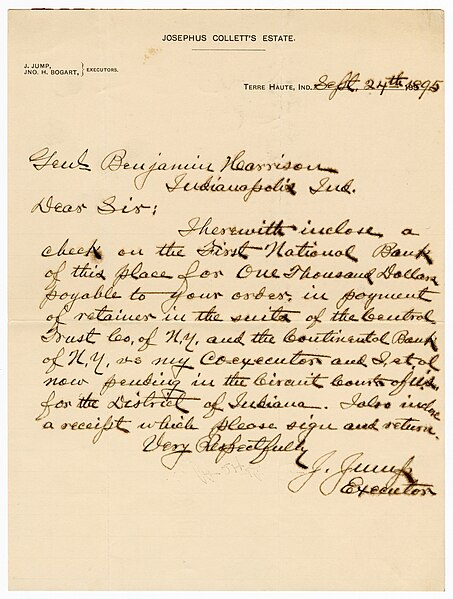 JOSEPHUS COLLETT'S ESTATE.
J. JUMP,
JNO. H. BOGART, } EXECUTORS.
TERRE HAUTE, IND. Sept. 24th 1895
Genl. Benjamin Harrison
Indianapolis Ind.
Dear Sir:
I herewith inclose a
check on the First National Bank
of this place for One Thousand Dollars
payable to your order, in payment
of retainer in the suits of the Central
Trust Co, of N.Y, and the Continental Bank
of N.Y, vs my Coexecutor and I, et al
now pending in the Circuit Court of U.S.
for the District of Indiana. I also inclose
a receipt which please sign and return.
Very Respectfully
J. Jump
Executor